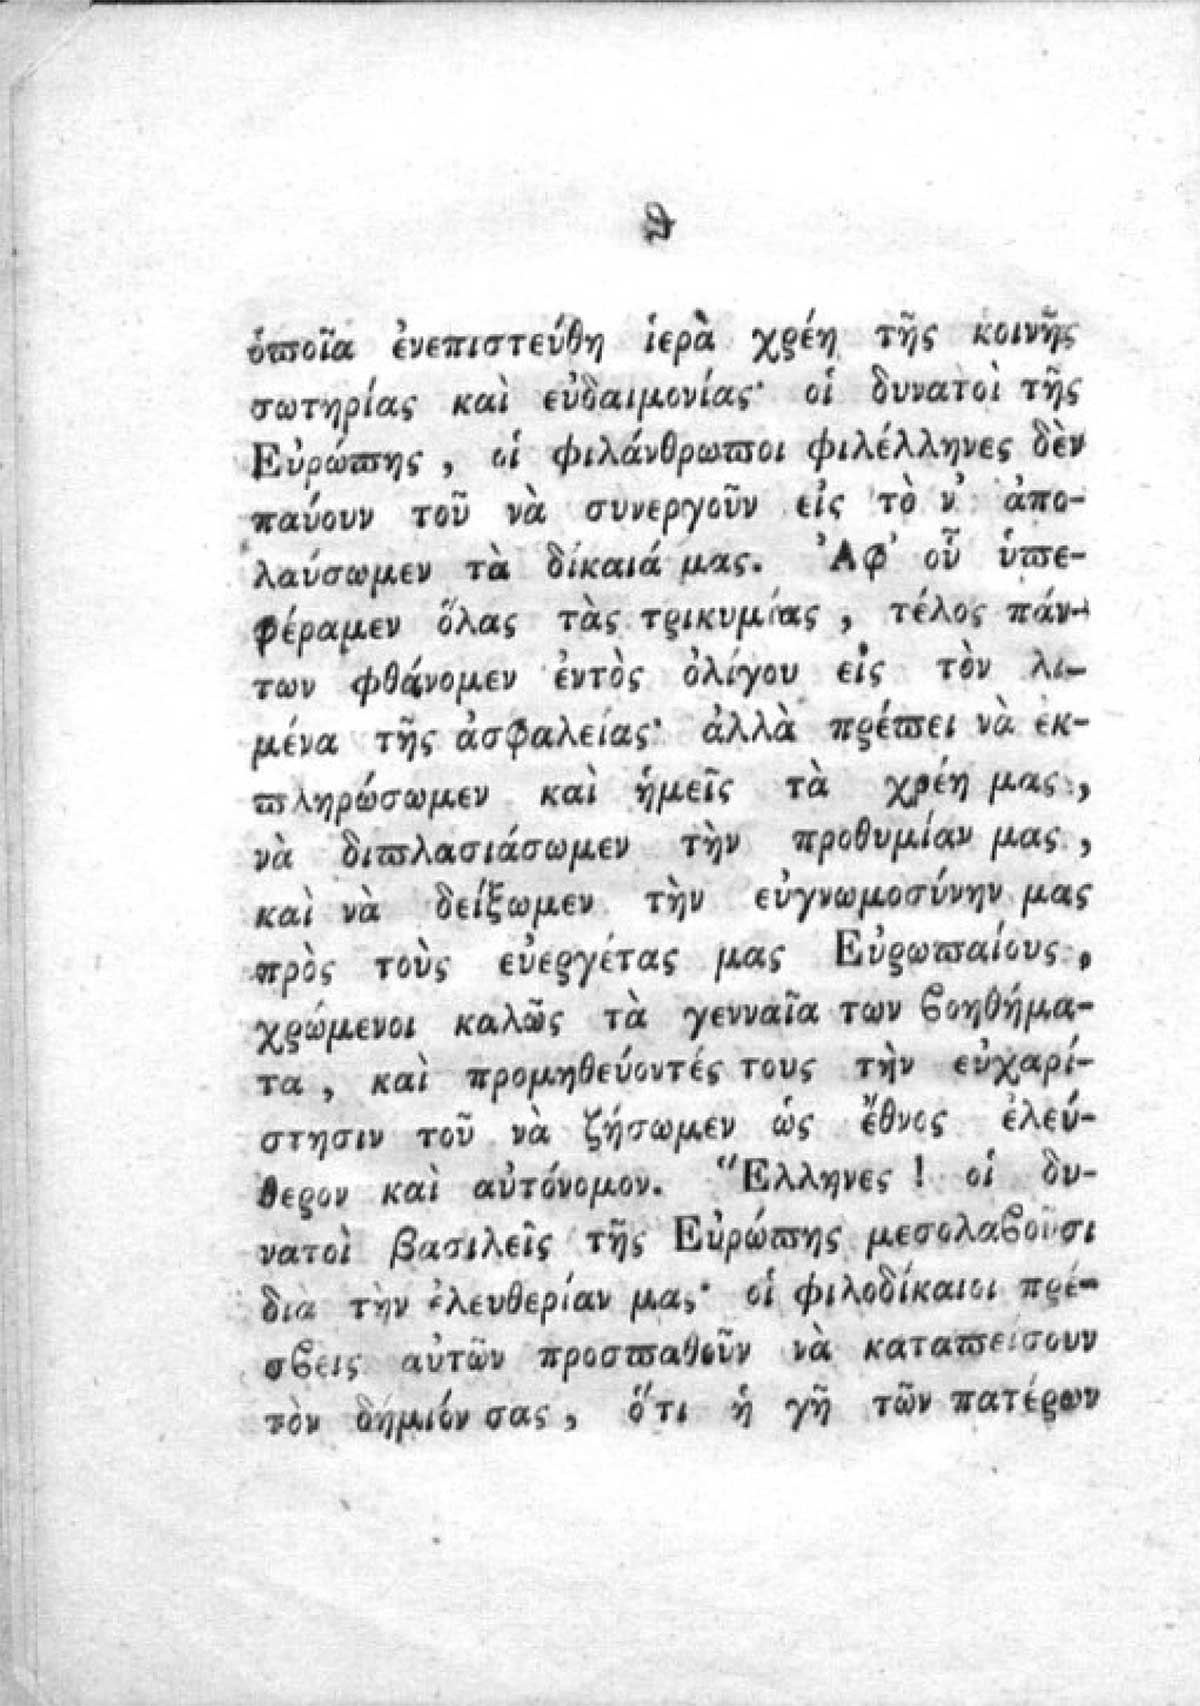 ϑ
ὁϖοῖα ἐνεπιστεύθη ἱερὰ χρέη τῆς κοινῆς
σωτηρίας καὶ εὐδαιμονίας· οἱ δυνατοὶ τῆς
Εὐρώϖης, οἱ φιλάνθρωϖοι φιλέλληνες δὲν
παύουν τοῦ νὰ συνεργοῦν εἰς τὸ ν' ἀπο-
λαύσωμεν τὰ δίκαιά μας. Ἀφ' οὗ ὑϖε-
φέραμεν ὅλας τὰς τρικυμίας, τέλος πάν-
των φθάνομεν ἐντὸς ὀλίγου εἰς τὸν λι-
μένα τῆς ἀσφαλείας· ἀλλὰ πρέϖει νὰ ἐκ-
ϖληρώσωμεν καὶ ἡμεῖς τὰ χρέη μας,
νὰ διϖλασιάσωμεν τὴν προθυμίαν μας,
καὶ νὰ δείξωμεν τὴν εὐγνωμοσύνην μας
πρὸς τοὺς εὐεργέτας μας Εὐρωϖαίους,
χρώμενοι καλῶς τὰ γενναῖα των βοηθήμα-
τα, καὶ προμηθεύοντές τους τὴν εὐχαρί-
στησιν τοῦ νὰ ζήσωμεν ὡς ἔθνος ἐλεύ-
θερον καὶ αὐτόνομον. Ἕλληνες! οἱ δυ-
νατοὶ βασιλεῖς τῆς Εὐρώϖης μεσολαβοῦσι
διὰ τὴν ἐλευθερίαν μας· οἱ φιλοδίκαιοι πρέ-
σβεις αὐτῶν προσϖαθοῦν νὰ καταϖείσουν
τὸν δήμιόν σας, ὅτι ἡ γῆ τῶν πατέρων